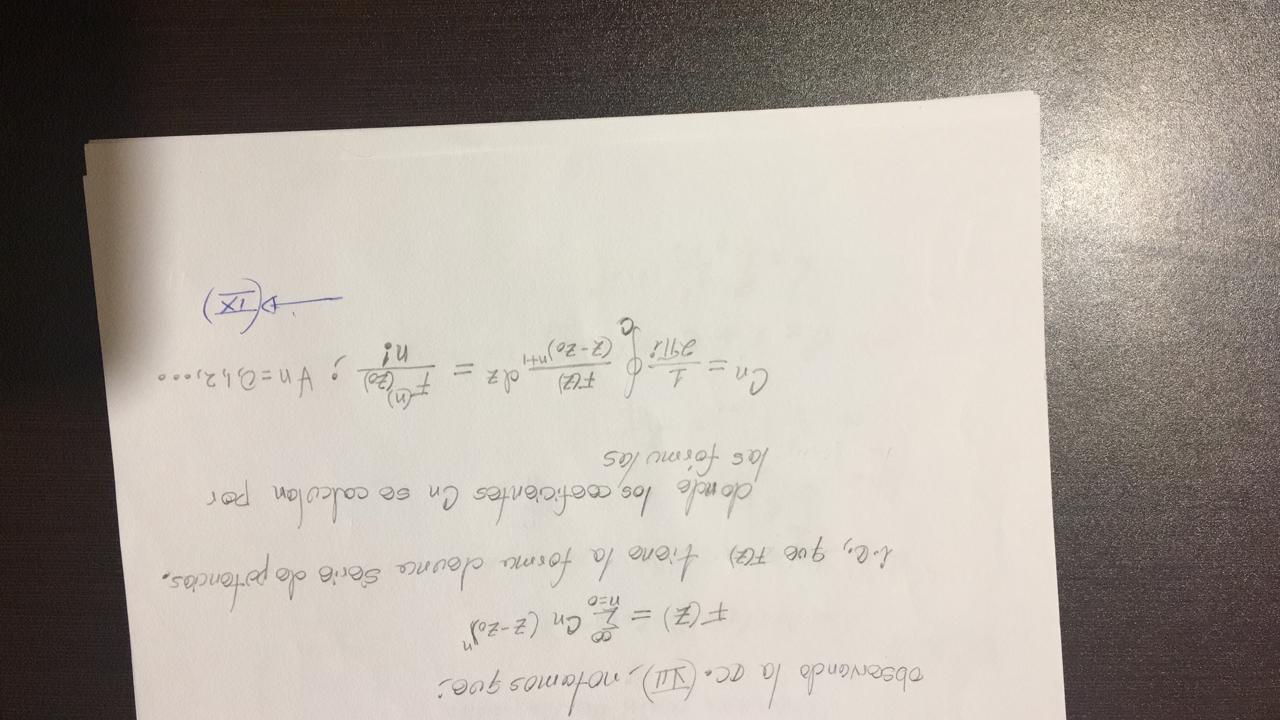 observando la ec. (VIII), notamos que:
F(z) = ∑_{n=0}^{∞} Cn (z-z₀)ⁿ
i.e., que F(z) tiene la forma de una serie de potencias.
donde los coeficientes Cn se calculan por
las fórmulas
Cn = 1/(2πi) ∮_C F(z)/(z-z₀)^{n+1} dz = F^{(n)}(z₀)/n! ; ∀n=0,1,2,...
(IX)